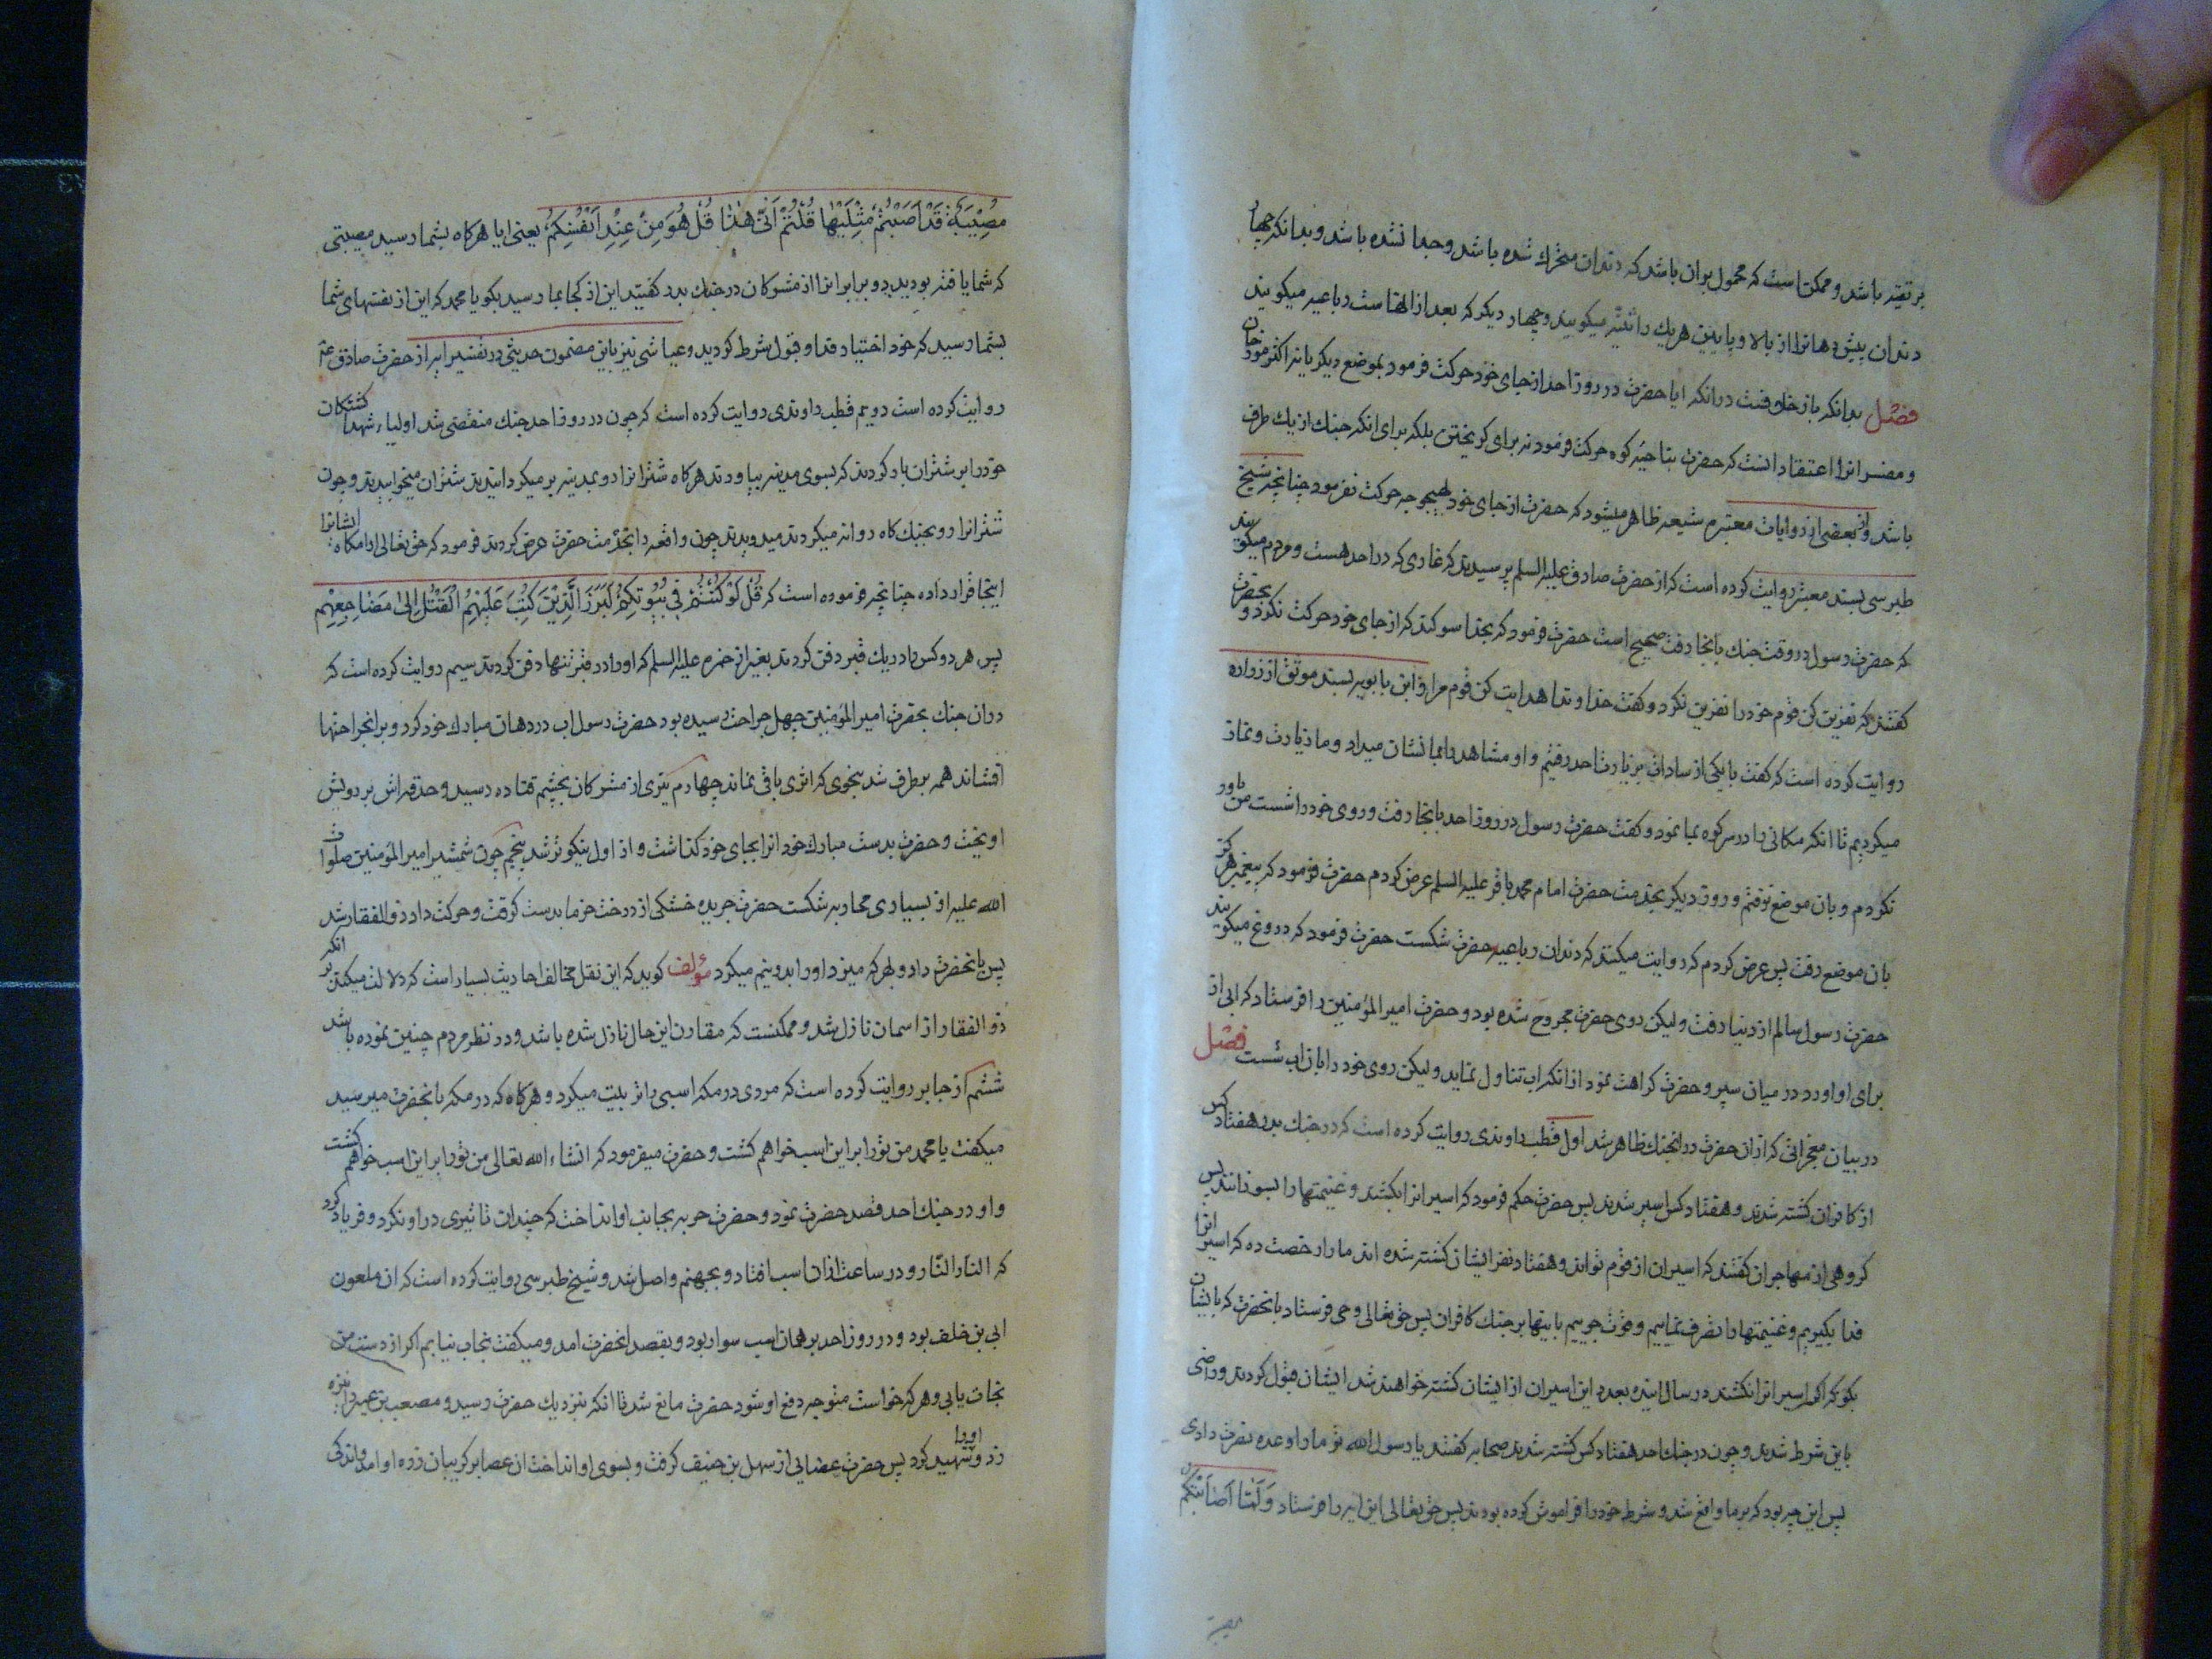 بر تقیه باشد و ممکنست که محمول بران باشد که دندان متحرك شده باشد و جدا نشده باشد و بدانکه چهار
دندان پیش دهانرا از بالا و پایین هریك را ثنیه میکویند و چهار دیکر که بعد از انهاست رباعیه میکویند
فصل بدانکه باز خلافست درانکه ایا حضرت در روز احد از جای خود حرکت فرمود بموضع دیکر یا نه اکثر مورخان
و مفسرانرا اعتقاد انست که حضرت بناحیه کوه حرکت فرمود نه برای کریختن بلکه برای انکه جنك از یك طرف
باشد و از بعضی از روایات معتبره شیعه ظاهر میشود که حضرت از جای خود بهیچوجه حرکت نفرمود چنانچه شیخ
طبرسی بسند معتبر روایت کرده است که از حضرت صادق علیه السلم پرسیدند که غاری که در احد هست و مردم میکویند
که حضرت رسول در وقت جنك بانجا رفت صحیح است حضرت فرمود که بخدا سوکند که از جای خود حرکت نکرد و بحضرت
کفتند که نفرین کن قوم خود را نفرین نکرد و کفت خداوندا هدایت کن قوم مرا و ابن بابویه بسند موثق از زراره
روایت کرده است که کفت با یکی از سادات بزیارت احد رفتیم و او مشاهد را بما نشان میداد و ما زیارت و نماز
میکردیم تا انکه مکانی را در سر کوه بما نمود و کفت حضرت رسول در روز احد بانجا رفت و روی خود را شست من باور
نکردم و بان موضع نرفتم و روز دیکر بخدمت حضرت امام محمد باقر علیه السلم عرض کردم حضرت فرمود که پیغمبر هرکز
بان موضع نرفت پس عرض کردم که روایت میکنند که دندان رباعیه حضرت شکست حضرت فرمود که دروغ میکویند
حضرت رسول سالم از دنیا رفت ولیکن روی حضرت مجروح شده بود و حضرت امیر المؤمنین را فرستاد که ابی از
برای او اورد در میان سپر و حضرت کراهت نمود از انکه اب تناول نماید ولیکن روی خود را بان اب شست فصل
در بیان معجزاتی که از ان حضرت در انجنك ظاهر شد اول قطب راوندی روایت کرده است که در جنك بدر هفتاد کس
از کافران کشته شدند و هفتاد کس اسیر شدند پس حضرت حکم فرمود که اسیرانرا بکشند و غنیمتها را بسوزانند پس
کروهی از مهاجران کفتند که اسیران از قوم تواند و هفتاد نفر ایشان کشته شده اند ما را رخصت ده که اسیرانرا
فدا بکیریم و غنیمتها را تصرف نماییم و قوت جوییم باینها بر جنك کافران پس حق تعالی وحی فرستاد بانحضرت که بایشان
بکو که اکر اسیرانرا نکشند در سال اینده بعدد این اسیران از ایشان کشته خواهند شد ایشان قبول کردند و راضی
باین شرط شدند و چون در جنك احد هفتاد کس کشته شدند صحابه کفتند یا رسول الله تو ما را وعده نصرت دادی
پس این چه بود که بر ما واقع شد و شرط خود را فراموش کرده بودند پس حق تعالی این ایه را فرستاد وَلَمَّا اَصٰابَتْكُمْ
مصیبة
مُصِيْبَةٌ قَدْ اَصَبْتُمْ مِثْلَيْهٰا قُلْتُمْ اَنّٰى هٰذٰا قُلْ هُوَ مِنْ عِنْدِ اَنْفُسِكُمْ یعنی ایا هرکاه بشما رسید مصیبتی
که شما یافته بودید دو برابر انرا از مشرکان در جنك بدر کفتید این از کجا بما رسید بکو یا محمد که این از نفسهای شما
بشما رسید که خود اختیار فدا و قبول شرط کردید و عیاشی نیز باین مضمون حدیثی در تفسیر ایه از حضرت صادق
روایت کرده است دویم قطب راوندی روایت کرده است که چون در روز احد جنك منقضی شد اولیاء شهدا کشتکان
خود را بر شتران بار کردند که بسوی مدینه بیاورند هرکاه شترانرا رو بمدینه بر میکردانیدند شتران میخوابیدند و چون
شترانرا رو بجنك کاه روانه میکردند میدویدند چون واقعه را بخدمت حضرت عرض کردند فرمود که حق تعالی ارامکاه ایشانرا
اینجا قرار داده چنانچه فرموده است که قُلْ لَوْ كُنْتُمْ فِى بُيُوتِكُمْ لَبَرَزَ الَّذِيْنَ كُتِبَ عَلَيْهِمُ الْقَتْلُ اِلٰى مَضٰاجِعِهِمْ
پس هر دو کس را در یك قبر دفن کردند بغیر از حمزه علیه السلم که او را در قبر تنها دفن کردند سیم روایت کرده است که
دران جنك بحضرت امیر المؤمنین چهل جراحت رسیده بود حضرت رسول اب در دهان مبارك خود کرد و بر انجراحتها
افشاند همه بر طرف شد بنحوی که اثری باقی نماند چهارم تیری از مشرکان بچشم قتاده رسید و حدقه اش بر رویش
اویخت و حضرت بدست مبارك خود انرا بجای خود کذاشت و از اول نیکوتر شد پنجم چون شمشیر امیر المؤمنین صلوات
الله علیه از بسیاری محاربه شکست حضرت جریده خشکی از درخت خرما بدست کرفت و حرکت داد ذوالفقار شد
پس بانحضرت داد و بهرکه میزد او را بدو نیم میکرد مؤلف کوید که این نقل مخالف احادیث بسیار است که دلالت میکنند بر انکه
ذوالفقار از اسمان نازل شد و ممکنست که مقارن این حال نازل شده باشد و در نظر مردم چنین نموده باشد
ششم از جابر روایت کرده است که مردی در مکه اسبی را تربیت میکرد و هرکاه که در مکه بانحضرت میرسید
میکفت یا محمد من تو را بر این اسب خواهم کشت و حضرت میفرمود که انشاء الله تعالی من تو را بر این اسب خواهم کشت
و او در جنك احد قصد حضرت نمود و حضرت حربه بجانب او انداخت که چندان تاثیری در او نکرد و فریاد کرد
که النار النار و در ساعت از ان اسب افتاد و بجهنم واصل شد و شیخ طبرسی روایت کرده است که ان ملعون
ابی بن خلف بود و در روز احد بر همان اسب سوار بود و بقصد انحضرت امد و میکفت نجات نیابم اکر از دست من
نجات یابی و هرکه خواست متوجه دفع او شود حضرت مانع شد تا انکه بنزدیك حضرت رسید و مصعب بن عمیر را نیزه
زد و او را شهید کرد پس حضرت عصایی از سهل بن حنیف کرفت و بسوی او انداخت ان عصا بر کریبان زره او امد و اندکی